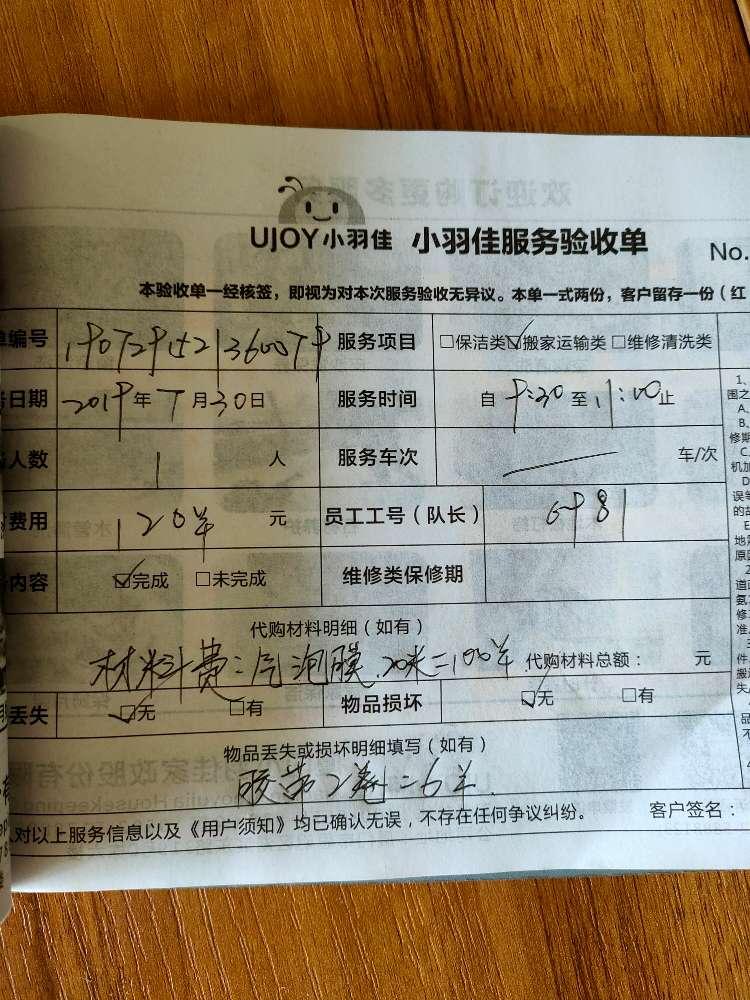 UJOY小羽佳 小羽佳服务验收单 No.
本验收单一经核签，即视为对本次服务验收无异议。本单一式两份，客户留存一份（红
单编号 服务项目 □保洁类 ☑搬家运输类 □维修清洗类
务日期 2019年7月30日 服务时间 自9:30至11:00止
人数 1人 服务车次 车/次
费用 120羊 元 员工工号（队长） 6981
务内容 ☑完成 □未完成 维修类保修期
代购材料明细（如有）
材料费：气泡膜20米=100羊 代购材料总额： 元
丢失 ☑无 □有 物品损坏 ☑无 □有
物品丢失或损坏明细填写（如有）
胶带2卷=6羊
对以上服务信息以及《用户须知》均已确认无误，不存在任何争议纠纷。 客户签名：